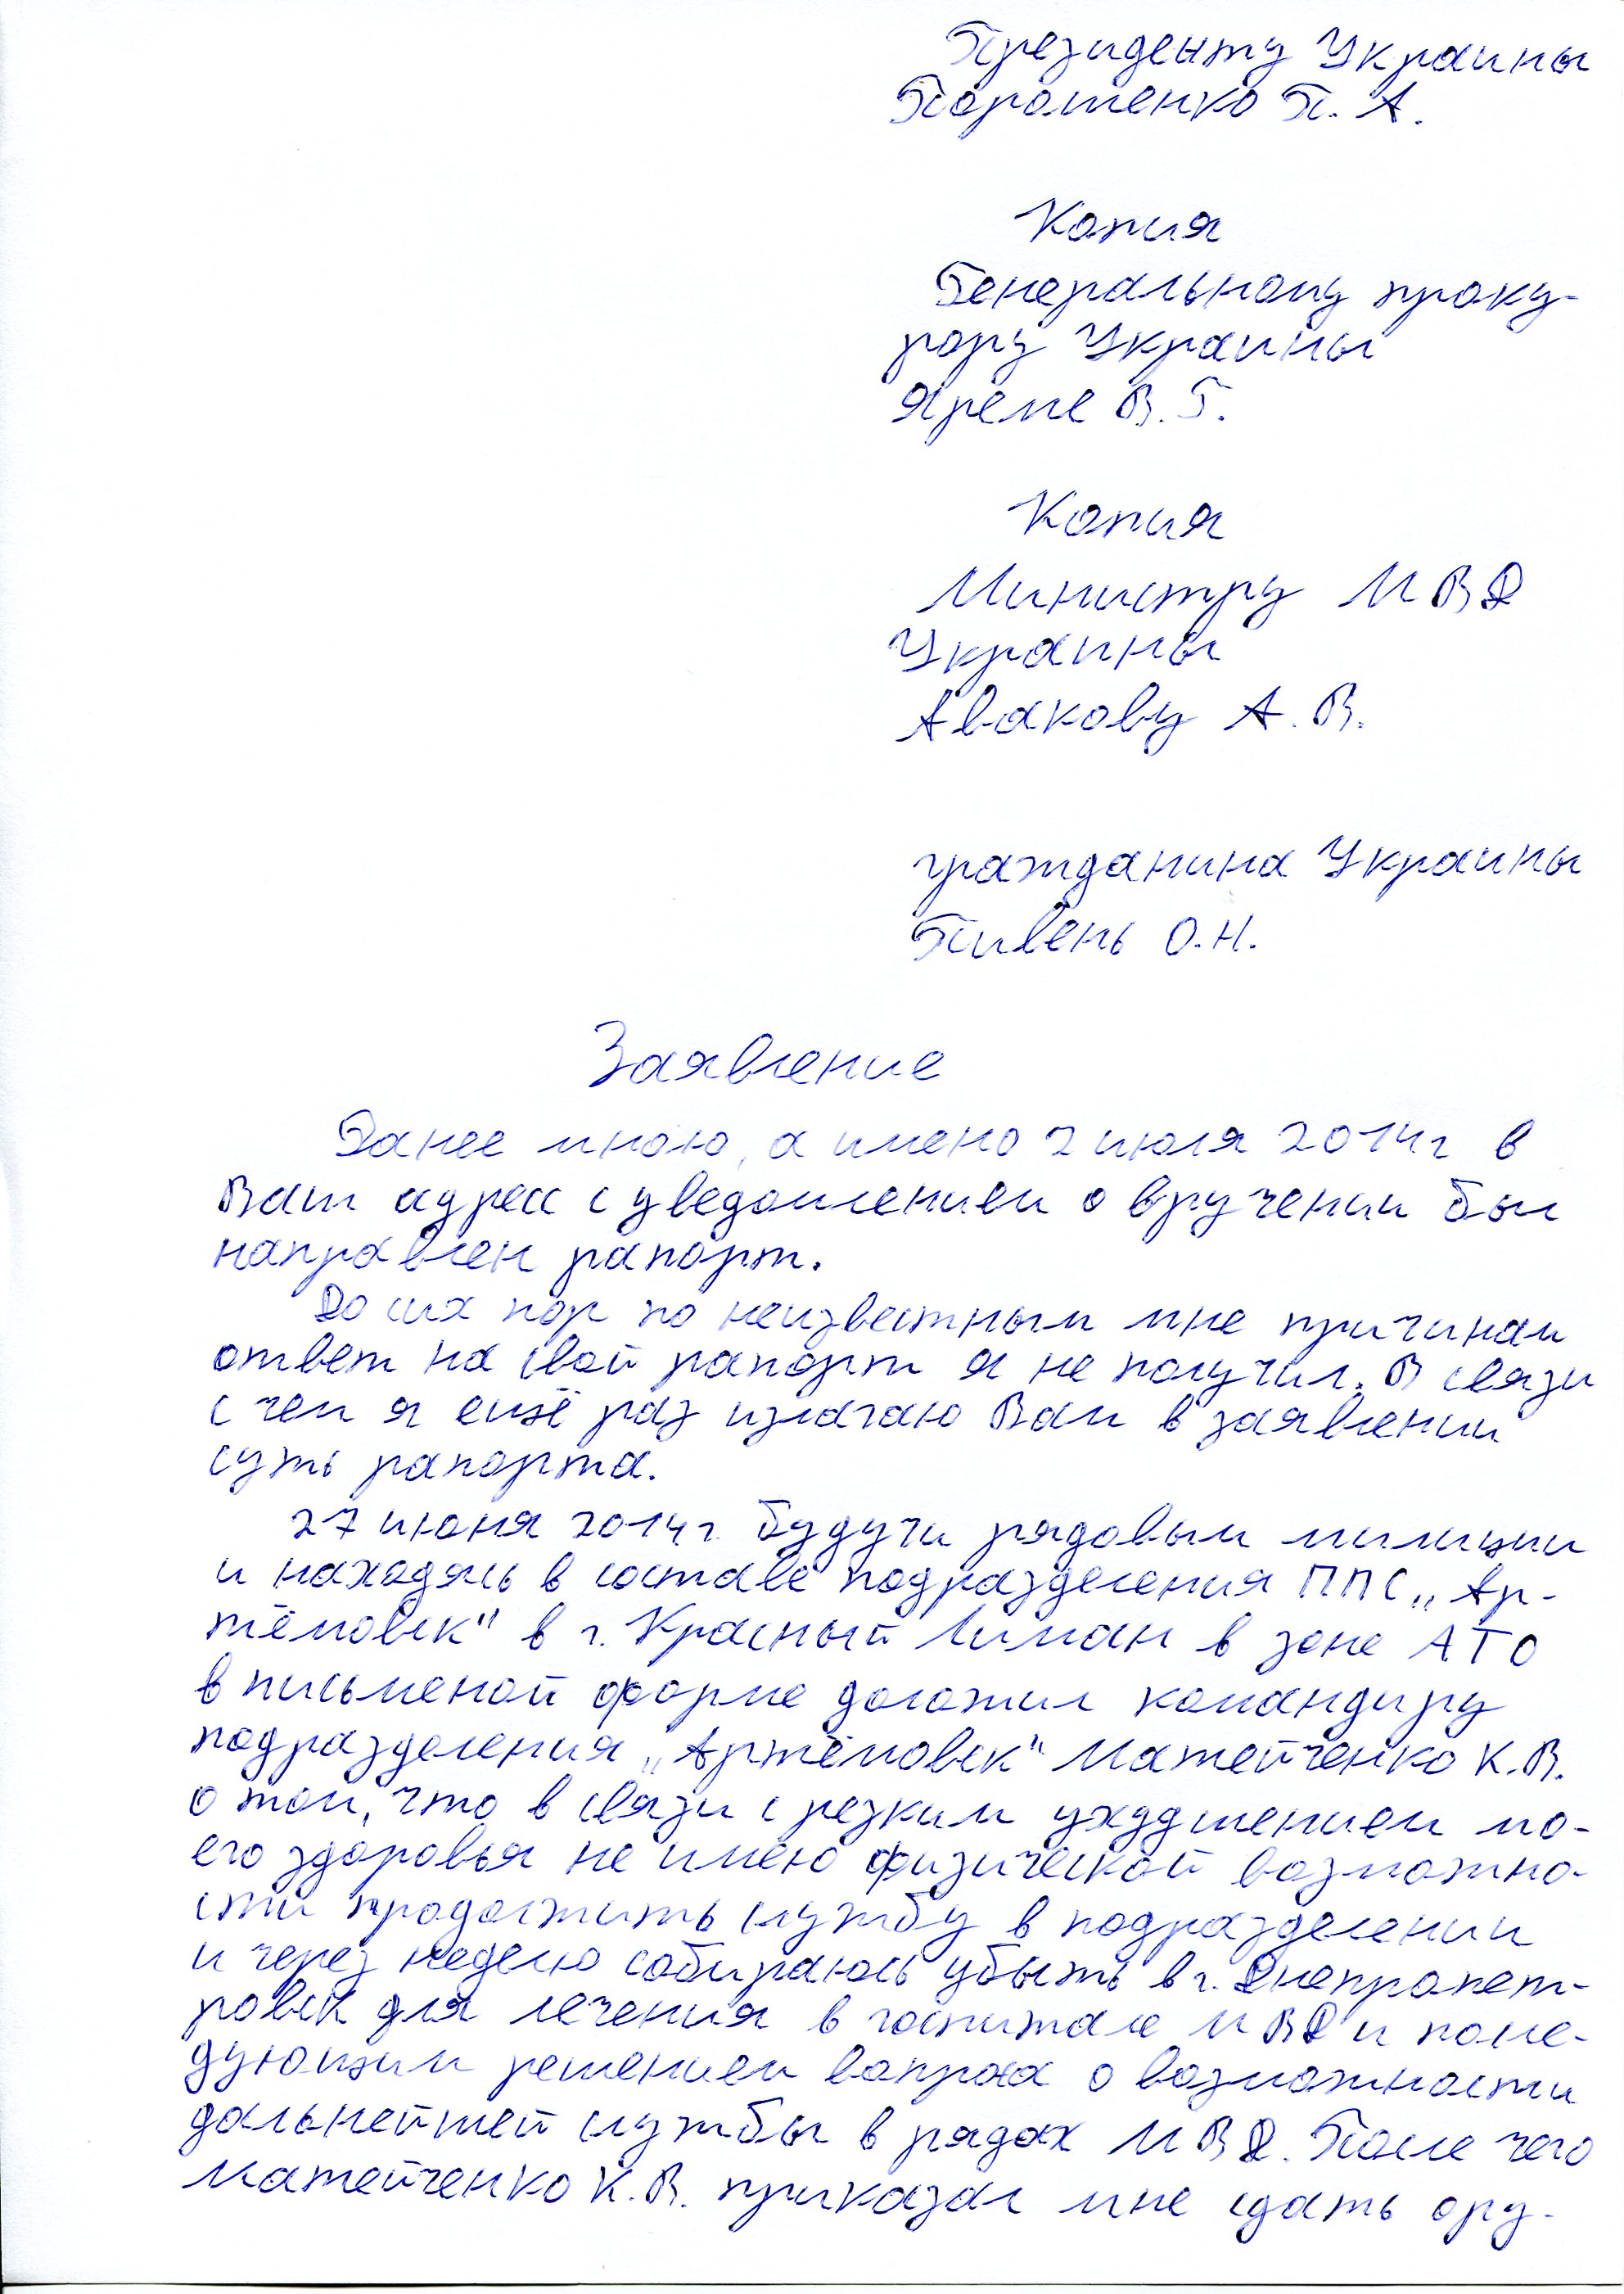 Президенту Украины
Порошенко П. А.
Копия
Генеральному проку-
рору Украины
Яреме В. Г.
Копия
Министру МВД
Украины
Авакову А. В.
гражданина Украины
Пивень О.Н.
Заявление
Ранее мною, а имено 2 июля 2014г в
Ваш адрес с уведомлением о вручении был
направлен рапорт.
До сих пор по неизвестным мне причинам
ответ на свой рапорт я не получил. В связи
с чем я ещё раз излагаю Вам в заявлении
суть рапорта.
27 июня 2014г. будучи рядовым милиции
и находясь в составе подразделения ППС „Ар-
тёмовск" в г. Красный Лиман в зоне АТО
в письменой форме доложил командиру
подразделения „Артёмовск" Матейченко К.В.
о том, что в связи с резким ухудшением мо-
его здоровья не имею физической возможно-
сти продолжить службу в подразделении
и через неделю собираюсь убыть в г. Днепропет-
ровск для лечения в госпитале МВД и после-
дующим решением вопроса о возможности
дальнейшей службы в рядах МВД. После чего
Матейченко К.В. приказал мне сдать ору-